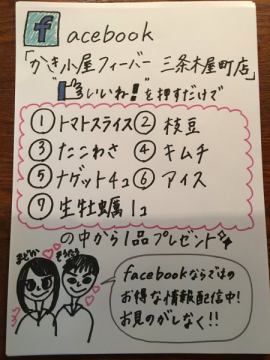 facebook
「かき小屋フィーバー 三条木屋町店」
"いいね!"を押すだけで
① トマトスライス ② 枝豆
③ たこわさ ④ キムチ
⑤ ナゲット4コ ⑥ アイス
⑦ 生牡蠣 1コ
の中から1品プレゼント
facebookならではの
お得な情報配信中!
お見のがしなく!!